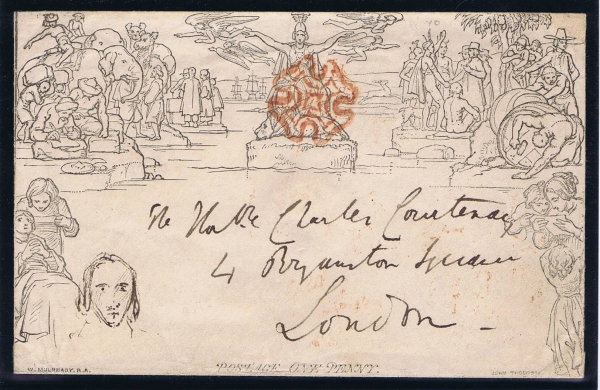 The Honble Charles Courtenay
4 Bryanston Square
London
POSTAGE ONE PENNY.
W. MULREADY. R.A.
JOHN THOMPSON